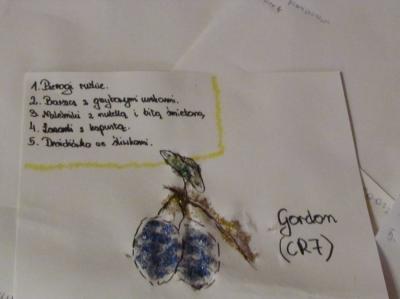 1. Pierogi ruskie.
2. Barszcz z grzybowymi uszkami.
3. Naleśniki z nutellą i bitą śmietaną
4. Łazanki z kapustą.
5. Drożdżówka ze śliwkami.
Gordon
(CR7)